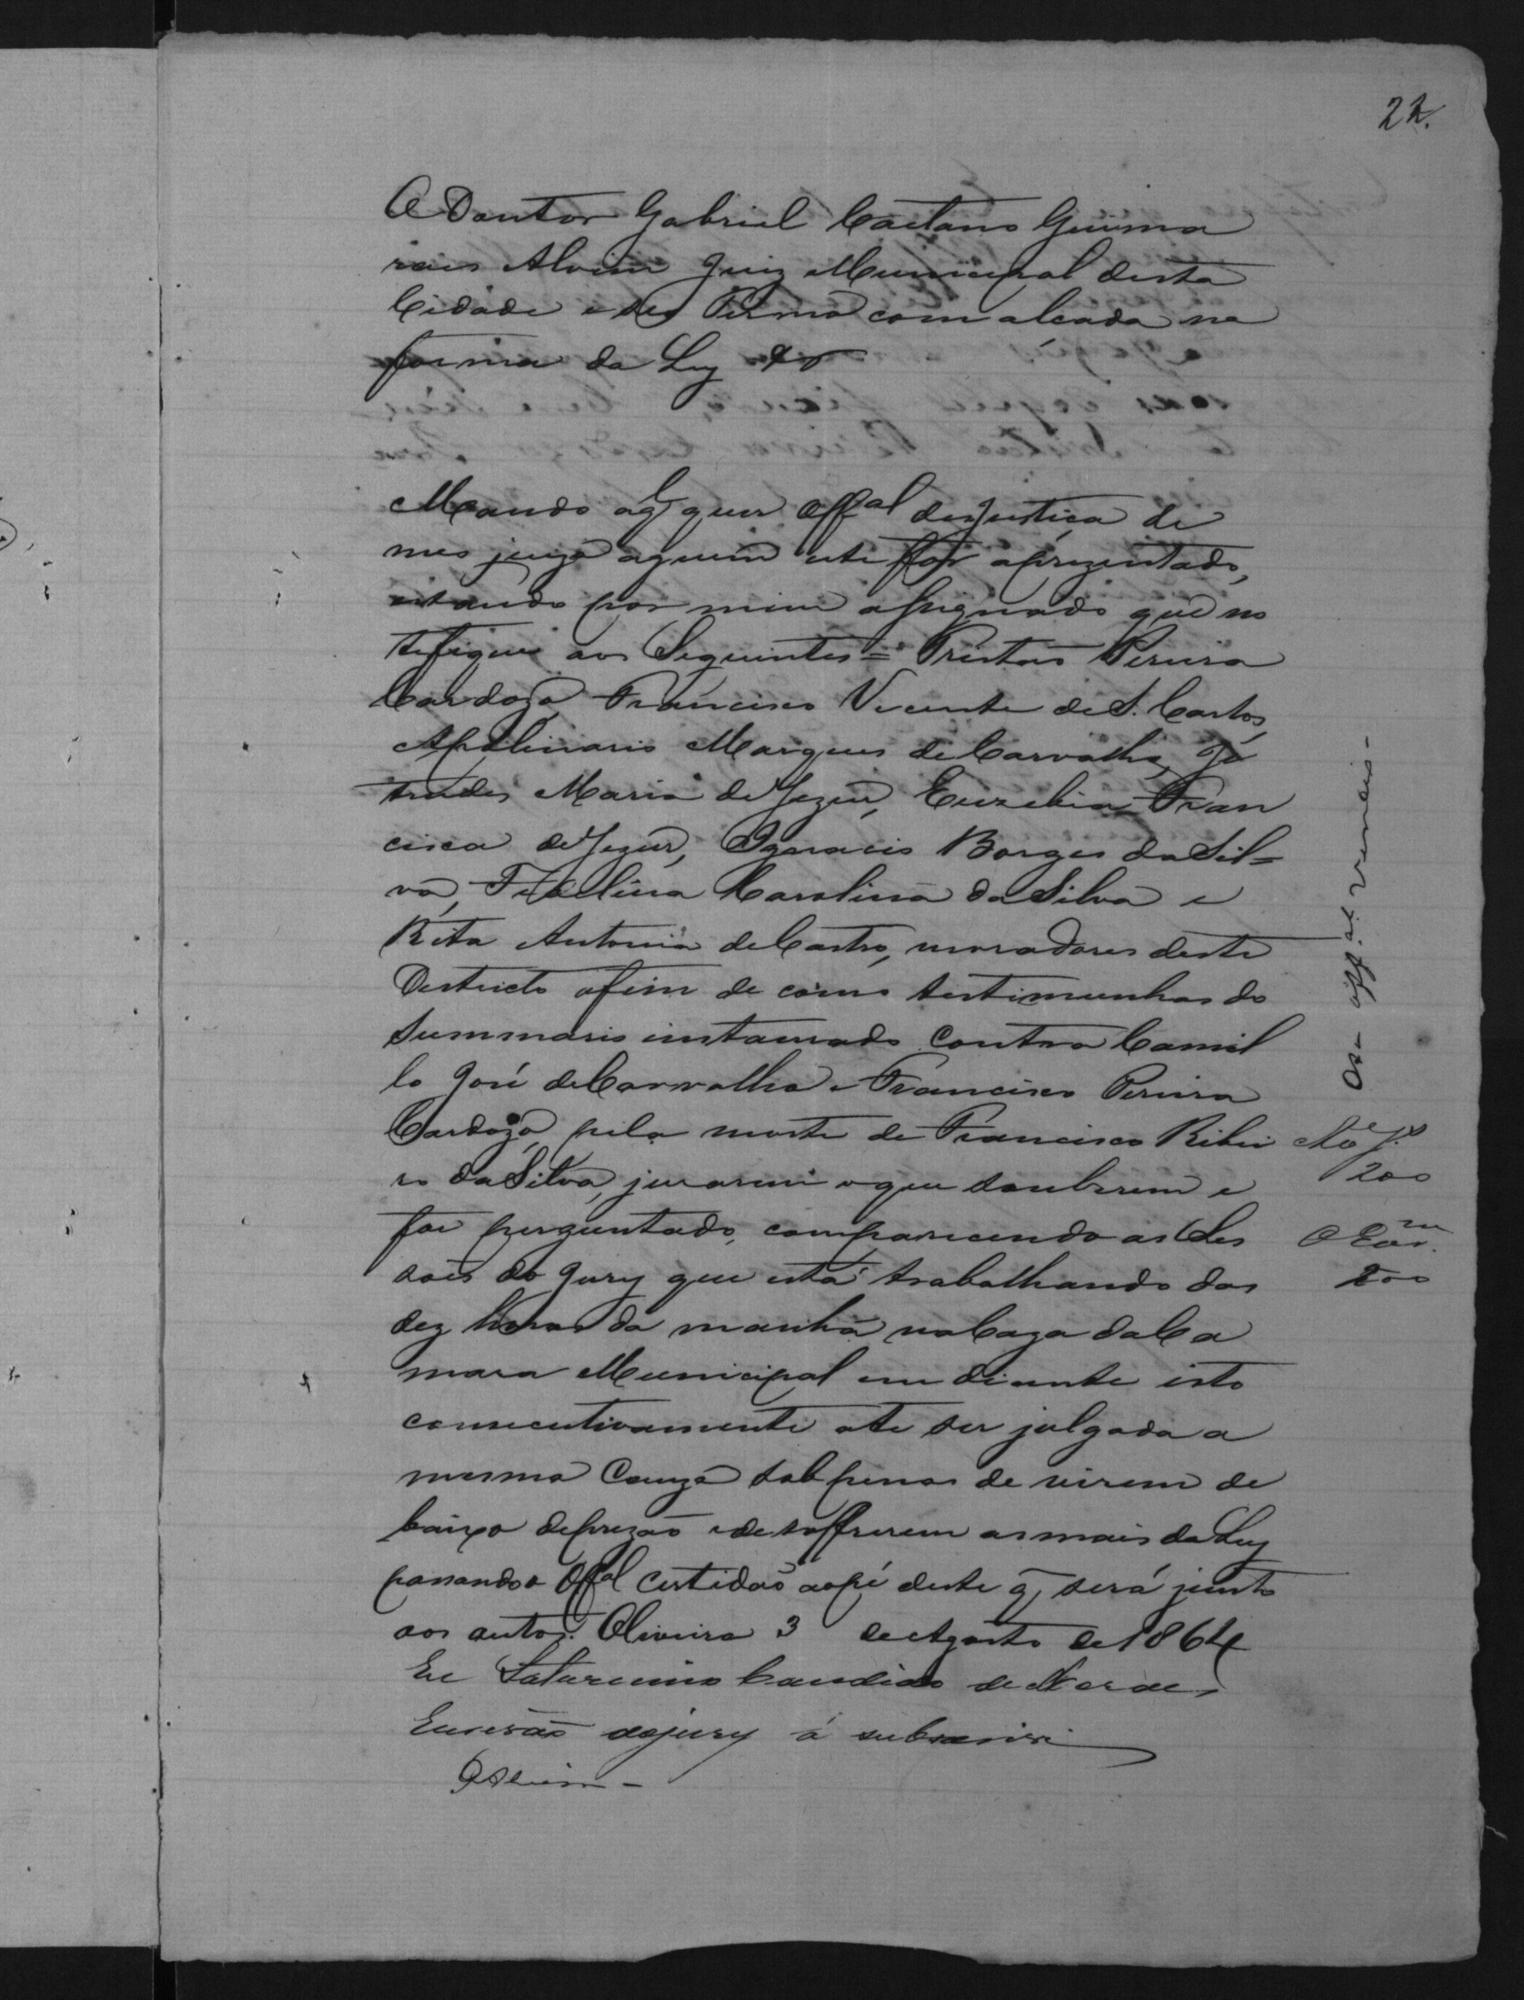 22.
O Doutor Gabriel Caetano Guima
rães Alvim Juiz Municipal desta
Cidade e seu Termo com alçada na
forma da Ley &
Mando a qq quer Offal de justiça de
meu juizo aquem este for aprezentado,
estando por mim assignado que no
tefique aos Seguintes = Tristão Pereira
Cardozo, Francisco Vicente de S. Carlos,
Apolinario Marques de Carvalho, Ge
trudes Maria de Jezus, Euzebia Fran
cisca de Jezus, Ignacio Borges da Sil=
va, Carolina da Silva e
Rita Antonia de Castro, moradores deste
Destricto afim de como testimunhas do
Summario instaurado contra Camil
lo José de Carvalho e Francisco Pereira
Cardozo, pela morte de Francisco Ribei
ro da Silva, jurarem o que souberem e
for perguntado, comparecendo as Ses
sões do Jury que está trabalhando das
dez horas da manhã na Caza da Ca
mara Municipal em diante isto
consecutivamente ate ser julgada a
mesma Cauza sob penas de virem de
baixo de prezão e de soffrerem as mais da Ley
passando o Offal certidão ao pé deste q será junto
aos autos. Oliveira 3 de Agosto de 1864
Eu Saturnino Candido de
Escrivão do jury o subscrivi
Alvim
200
O Escr.
200